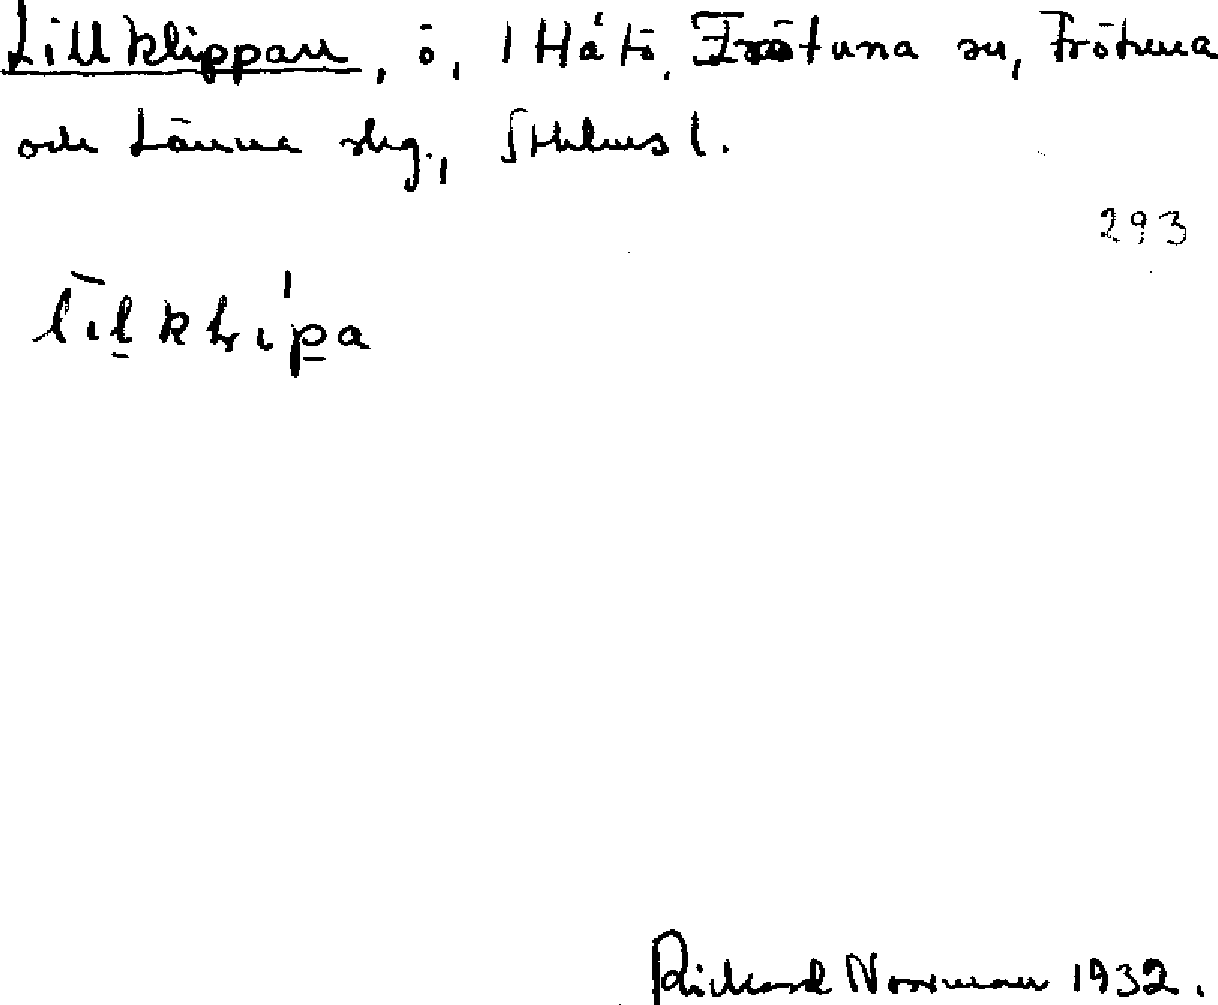 Lillklippan, ö, 1 Håtö, Frötuna sn, Frötuna
och Länna skg., Sthlms l.
293
lilklipa
Rickard Norrman 1932.